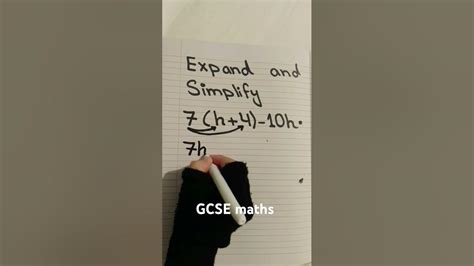 Expand and
Simplify
7(h+4)-10h.
7h
GCSE maths